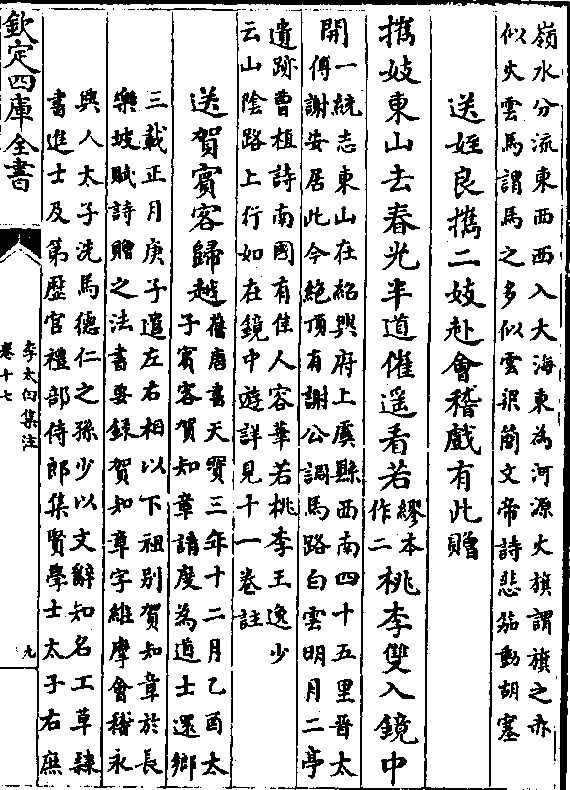 嶺水分流東西西入大海東為河源火旗謂旗之赤
似火雲馬謂馬之多似雲梁簡文帝詩悲笳動胡塞
送姪良攜二妓赴會稽戲有此贈
攜妓東山去春光半道催遥看若繆本作二桃李雙入鏡中
開一統志東山在紹興府上虞縣西南四十五里晉太
傅謝安居此今絶頂有謝公調馬路白雲明月二亭
遺跡曹植詩南國有佳人容華若桃李王逸少
云山陰路上行如在鏡中遊詳見十一卷註
送賀賓客歸越舊唐書天寶三年十二月乙酉太
子賓客賀知章請度為道士還鄉
三載正月庚子遣左右相以下祖別賀知章於長
樂坡賦詩贈之法書要錄賀知章字維摩會稽永
興人太子洗馬德仁之孫少以文辭知名工草隸
書進士及第歴官禮部侍郎集賢學士太子右庶
欽定四庫全書
李太白集注
卷十七
九